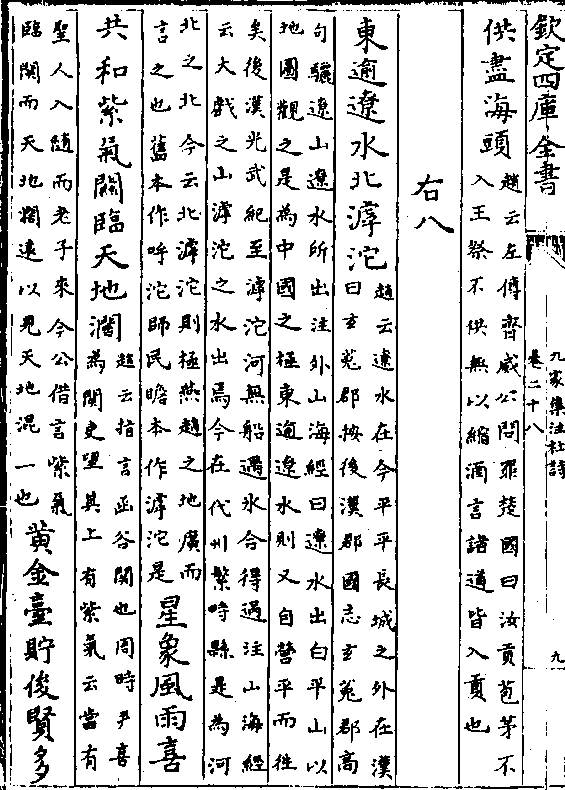 欽定四庫全書
九家集注杜詩
卷二十八
九
供盡海頭
趙云左傳齊威公問罪楚國曰汝貢苞茅不
入王祭不供無以縮酒言諸道皆入貢也
右八
東逾遼水北滹沱
趙云遼水在今平平長城之外在漢
曰玄菟郡按後漢郡國志玄菟郡高
句驪遼山遼水所出注外山海經曰遼水出白平山以
地圖觀之是為中國之極東逾遼水則又自營平而徃
矣後漢光武紀至滹沱河無船遇氷合得過注山海經
云大戲之山滹沱之水出焉今在代州繁畤縣是為河
北之北今云北滹沱則極燕趙之地廣而
言之也舊本作呼沱師民瞻本作滹沱是
星象風雨喜
共和紫氣闗臨天地濶
趙云指言函谷關也周時尹喜
為関吏望其上有紫氣云當有
聖人入随而老子來今公借言紫氣
臨関而天地濶遠以見天地混一也
黄金臺貯俊賢多